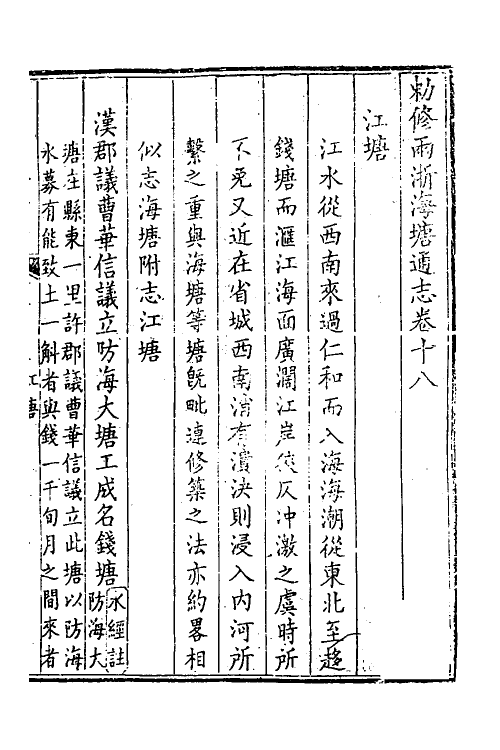 勅修兩浙海塘通志卷十八
江塘
江水從西南來過仁和而入海海潮從東北至趨
錢塘而滙江海面廣濶江岸復仄冲激之虞時所
不免又近在省城西南浦有潰決則浸入內河所
繫之重與海塘等塘既毗連修築之法亦約畧相
似志海塘附志江塘
漢郡議曹華信議立防海大塘工成名錢塘水經註防海大
塘在縣東一里許郡議曹華信議立此塘以防海
水募有能致土一斛者與錢一千旬月之間來者
江塘